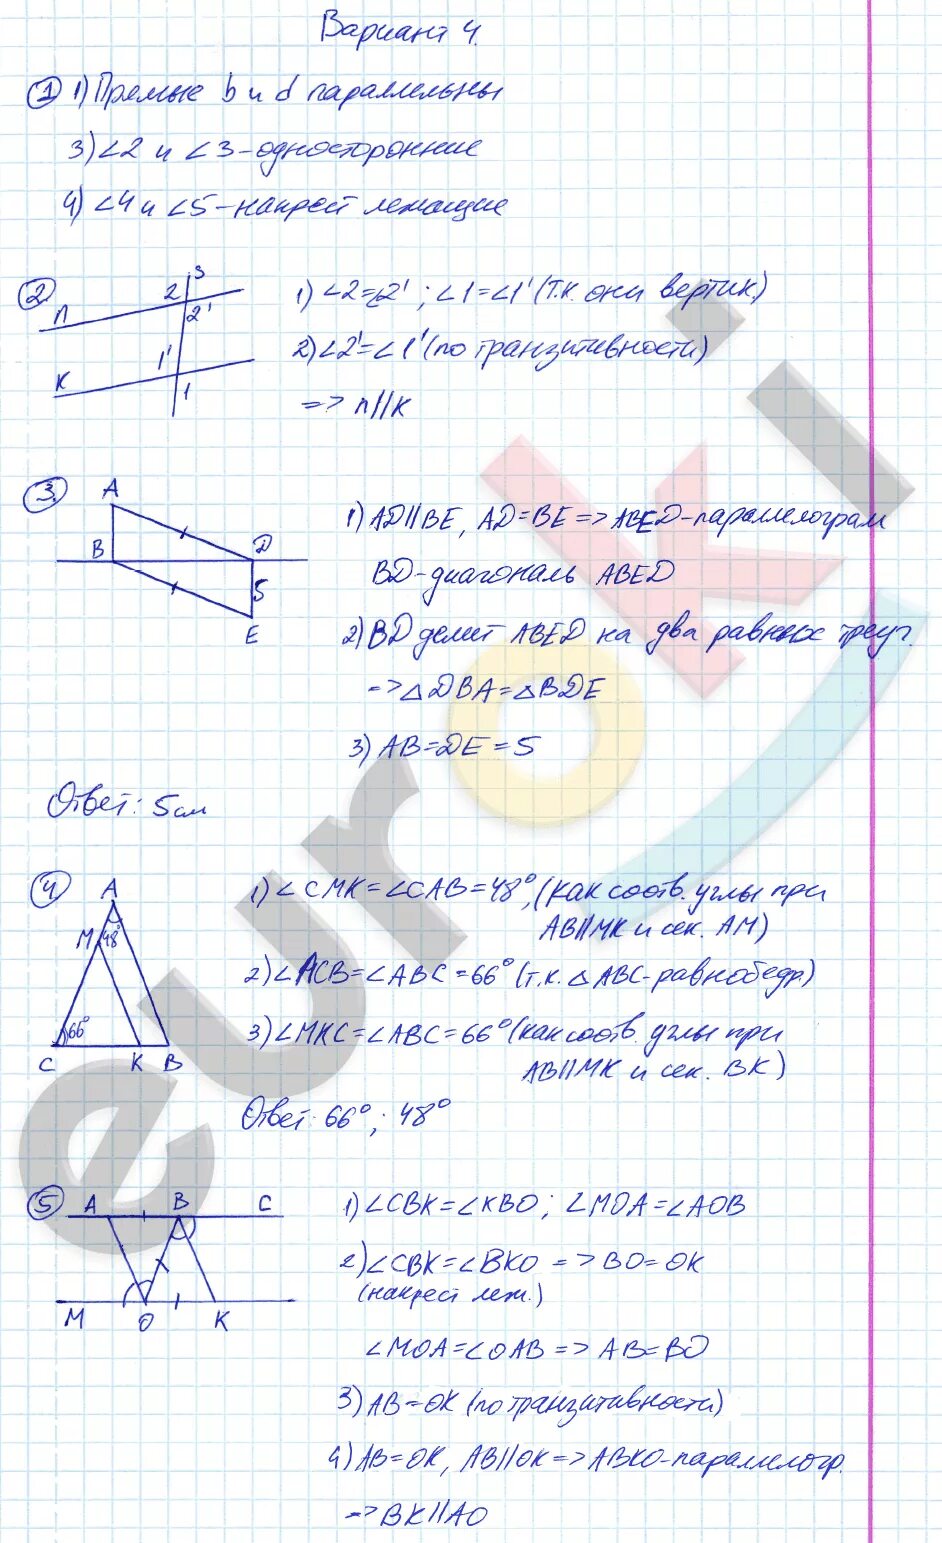 Вариант 4.
① 1) Прямые b и d параллельны
3) ∠2 и ∠3 - односторонние
4) ∠4 и ∠5 - накрест лежащие
②
3
2
2'
n
1'
K
1
1) ∠2=∠2' ; ∠1=∠1' (т.к. они вертик.)
2) ∠2'=∠1' (по транзитивности)
=> n//K
③
A
B
D
5
E
1) AD//BE, AD=BE => ABED-параллелограм
BD-диагональ ABED
2) BD делит ABED на два равных треуг.
=> △DBA=△BDE
3) AB=DE=5
Ответ: 5см
④
A
M
48°
66°
C
K
B
1) ∠CMK=∠CAB=48°, (как соотв. углы при
AB//MK и сек. AM)
2) ∠ACB=∠ABC=66° (т.к. △ABC-равнобедр.)
3) ∠MKC=∠ABC=66° (как соотв. углы при
AB//MK и сек. BK)
Ответ: 66°; 48°
⑤
A
B
C
M
O
K
1) ∠CBK=∠KBO; ∠MOA=∠AOB
2) ∠CBK=∠BKO => BO=OK
(накрест леж.)
∠MOA=∠OAB => AB=BO
3) AB=OK (по транзитивности)
4) AB=OK, AB//OK => ABKO-параллелогр.
=> BK//AO
euroki